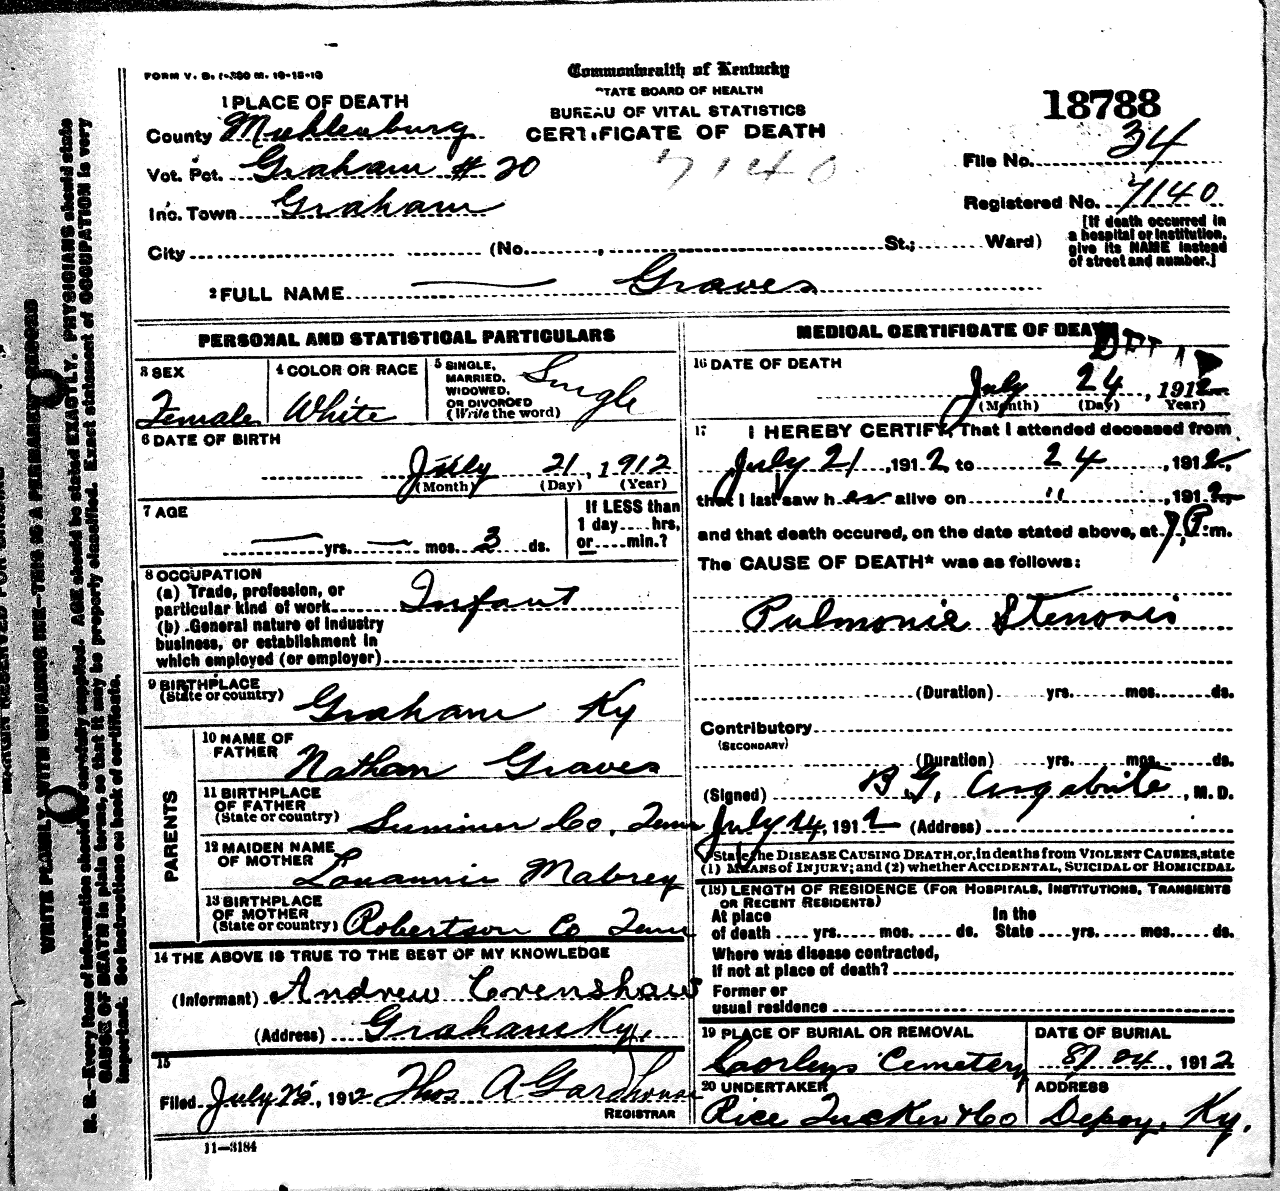 FORM V. S. 1-300 M. 10-15-10
Commonwealth of Kentucky
STATE BOARD OF HEALTH
BUREAU OF VITAL STATISTICS
CERTIFICATE OF DEATH
18788
1 PLACE OF DEATH
County Muhlenburg
Vot. Pct. Graham # 20
7140
File No. 34
Inc. Town Graham
Registered No. 7140
City (No. , St.; Ward)
[If death occurred in
a hospital or institution,
give its NAME instead
of street and number.]
2 FULL NAME Graves
PERSONAL AND STATISTICAL PARTICULARS
3 SEX
Female
4 COLOR OR RACE
White
5 SINGLE,
MARRIED,
WIDOWED,
OR DIVORCED
(Write the word)
Single
6 DATE OF BIRTH
July 21, 1912
(Month) (Day) (Year)
7 AGE
— yrs. — mos. 3 ds.
If LESS than
1 day .... hrs,
or .... min.?
8 OCCUPATION
(a) Trade, profession, or
particular kind of work Infant
(b) General nature of industry
business, or establishment in
which employed (or employer)
9 BIRTHPLACE
(State or country) Graham Ky
PARENTS
10 NAME OF
FATHER Nathan Graves
11 BIRTHPLACE
OF FATHER
(State or country) Sumner Co, Tenn
12 MAIDEN NAME
OF MOTHER Louannie Mabrey
13 BIRTHPLACE
OF MOTHER
(State or country) Robertson Co Tenn
14 THE ABOVE IS TRUE TO THE BEST OF MY KNOWLEDGE
(Informant) Andrew Crenshaw
(Address) Graham Ky.
15
Filed July 25, 1912 Thos A Gardhouse
REGISTRAR
11—3184
MEDICAL CERTIFICATE OF DEATH
16 DATE OF DEATH
July 24, 1912
(Month) (Day) Year)
17 I HEREBY CERTIFY, That I attended deceased from
July 21, 1912 to 24, 1912,
that I last saw her alive on " , 1912
and that death occured, on the date stated above, at 7 P. m.
The CAUSE OF DEATH* was as follows:
Pulmonic Stenosis
(Duration) yrs. mos. ds.
Contributory
(SECONDARY)
(Duration) yrs. mos. ds.
(Signed) B.G. Argabrite, M. D.
July 24, 1912 (Address)
*State the DISEASE CAUSING DEATH, or, in deaths from VIOLENT CAUSES, state
(1) MEANS OF INJURY; and (2) whether ACCIDENTAL, SUICIDAL OR HOMICIDAL
(18) LENGTH OF RESIDENCE (FOR HOSPITALS, INSTITUTIONS, TRANSIENTS
OR RECENT RESIDENTS)
At place In the
of death .... yrs. .... mos. .... ds. State .... yrs. .... mos. .... ds.
Where was disease contracted,
If not at place of death?
Former or
usual residence
19 PLACE OF BURIAL OR REMOVAL
Corleys Cemetery
DATE OF BURIAL
8/24, 1912
20 UNDERTAKER
Rice Tucker & Co
ADDRESS
Depoy, Ky.
WRITE PLAINLY, WITH UNFADING INK—THIS IS A PERMANENT RECORD
N. B.—Every item of information should be carefully supplied. AGE should be stated EXACTLY. PHYSICIANS should state
CAUSE OF DEATH in plain terms, so that it may be properly classified. Exact statement of OCCUPATION is very
important. See instructions on back of certificate.